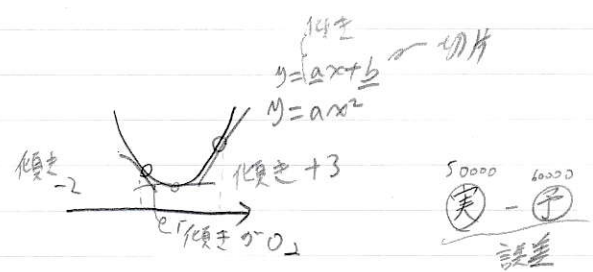 傾き
y=ax+b 切片
y=ax²
傾き -2
傾き +3
傾きが0
50000 60000
実 - 予
誤差